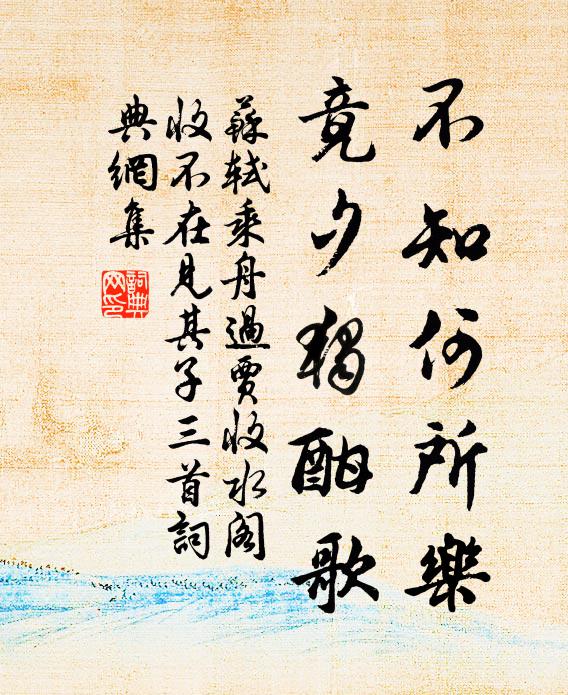 不知何所樂
竟夕獨酣歌
蘇軾乘舟過賈收水閣
收不在見其子三首詞
典網集
詞典
网印